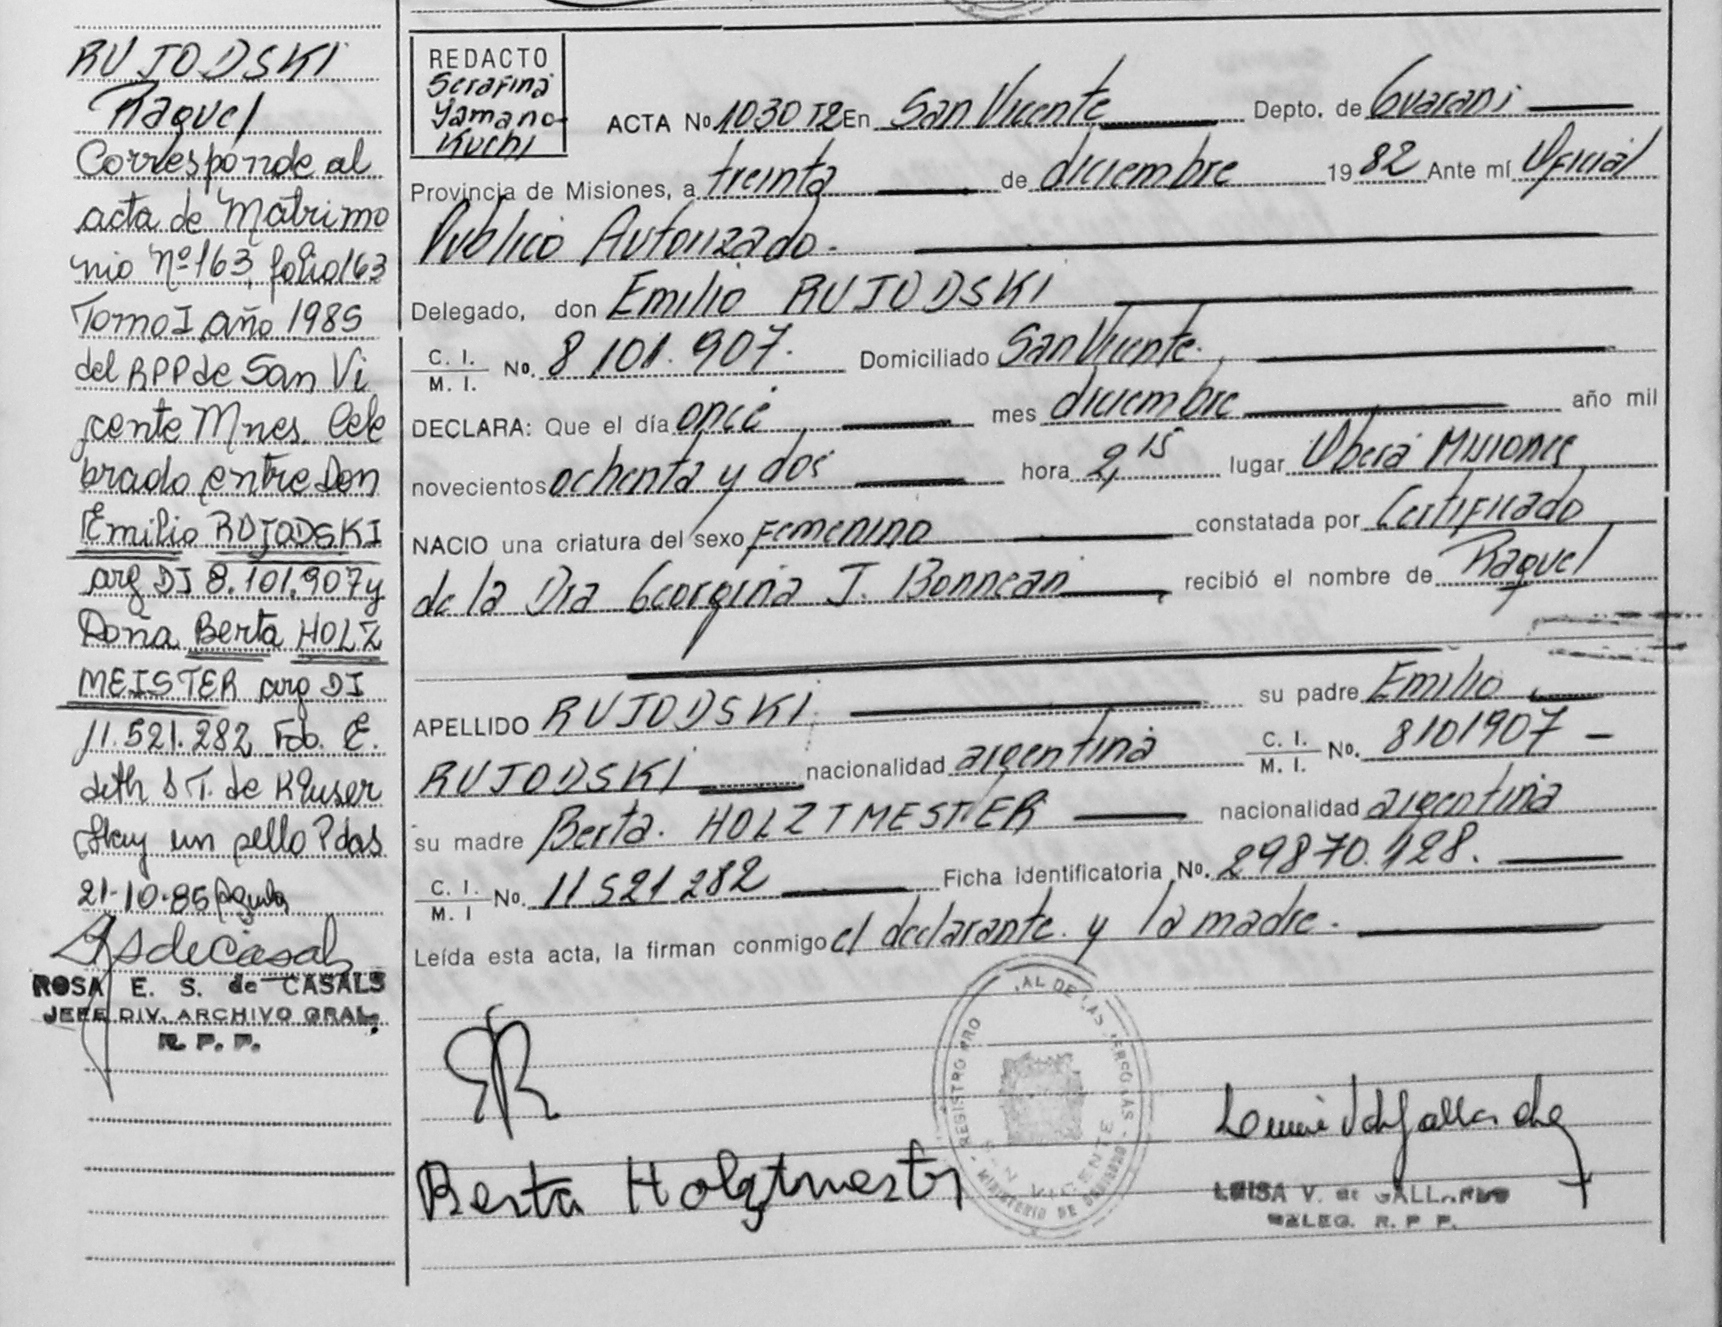 RUJODSKI
Raquel
Corresponde al
acta de Matrimo
nio nº 163, folio 163
Tomo I, año 1985
del RPP de San Vi
cente Mnes. Cele
brado entre Don
Emilio RUJODSKI
arg DI 8.101.907 y
Doña Berta HOLZ
MEISTER arg DI
11.521.282 Fdo. E.
dith S T. de
Hay un sello P das
21-10-85
ROSA E. S. de CASALS
JEFE DIV. ARCHIVO GRAL.
R. P. P.
REDACTO
Serafina
Yamano-
Kuchi
ACTA No 1030 T2 En San Vicente Depto. de Guarani
Provincia de Misiones, a treinta de diciembre 1982 Ante mí Oficial
Publico Autorizado.
Delegado, don Emilio RUJODSKI
C. I. M. I. No. 8 101.907. Domiciliado San Vicente.
DECLARA: Que el día once mes diciembre año mil
novecientos ochenta y dos hora 2,15 lugar Oberá Misiones
NACIO una criatura del sexo Femenino constatada por Certificado
de la Dra Georgina J. Bonnean, recibió el nombre de Raquel
APELLIDO RUJODSKI su padre Emilio
RUJODSKI nacionalidad argentina C. I. M. I. No. 8101907 —
su madre Berta. HOLZTMESTER nacionalidad argentina
C. I. M. I No. 11521282 Ficha identificatoria No. 29870.128.
Leída esta acta, la firman conmigo el declarante. y la madre.
ER
Berta Holztmester
REGISTRO PRO AL DE LAS PERSONAS
MINISTERIO DE GOBIERNO
SAN VICENTE
LUISA V. de GALLARDO
DELEG. R. P. P.